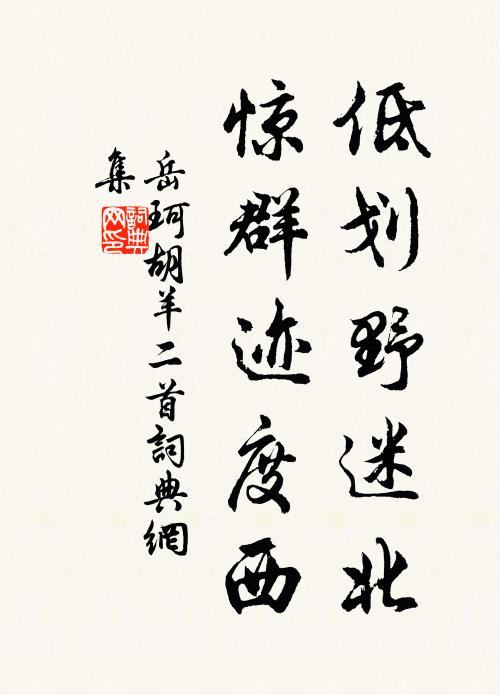 低划野迷北
惊群迹度西
岳珂胡羊二首詞典網
集
詞典網印